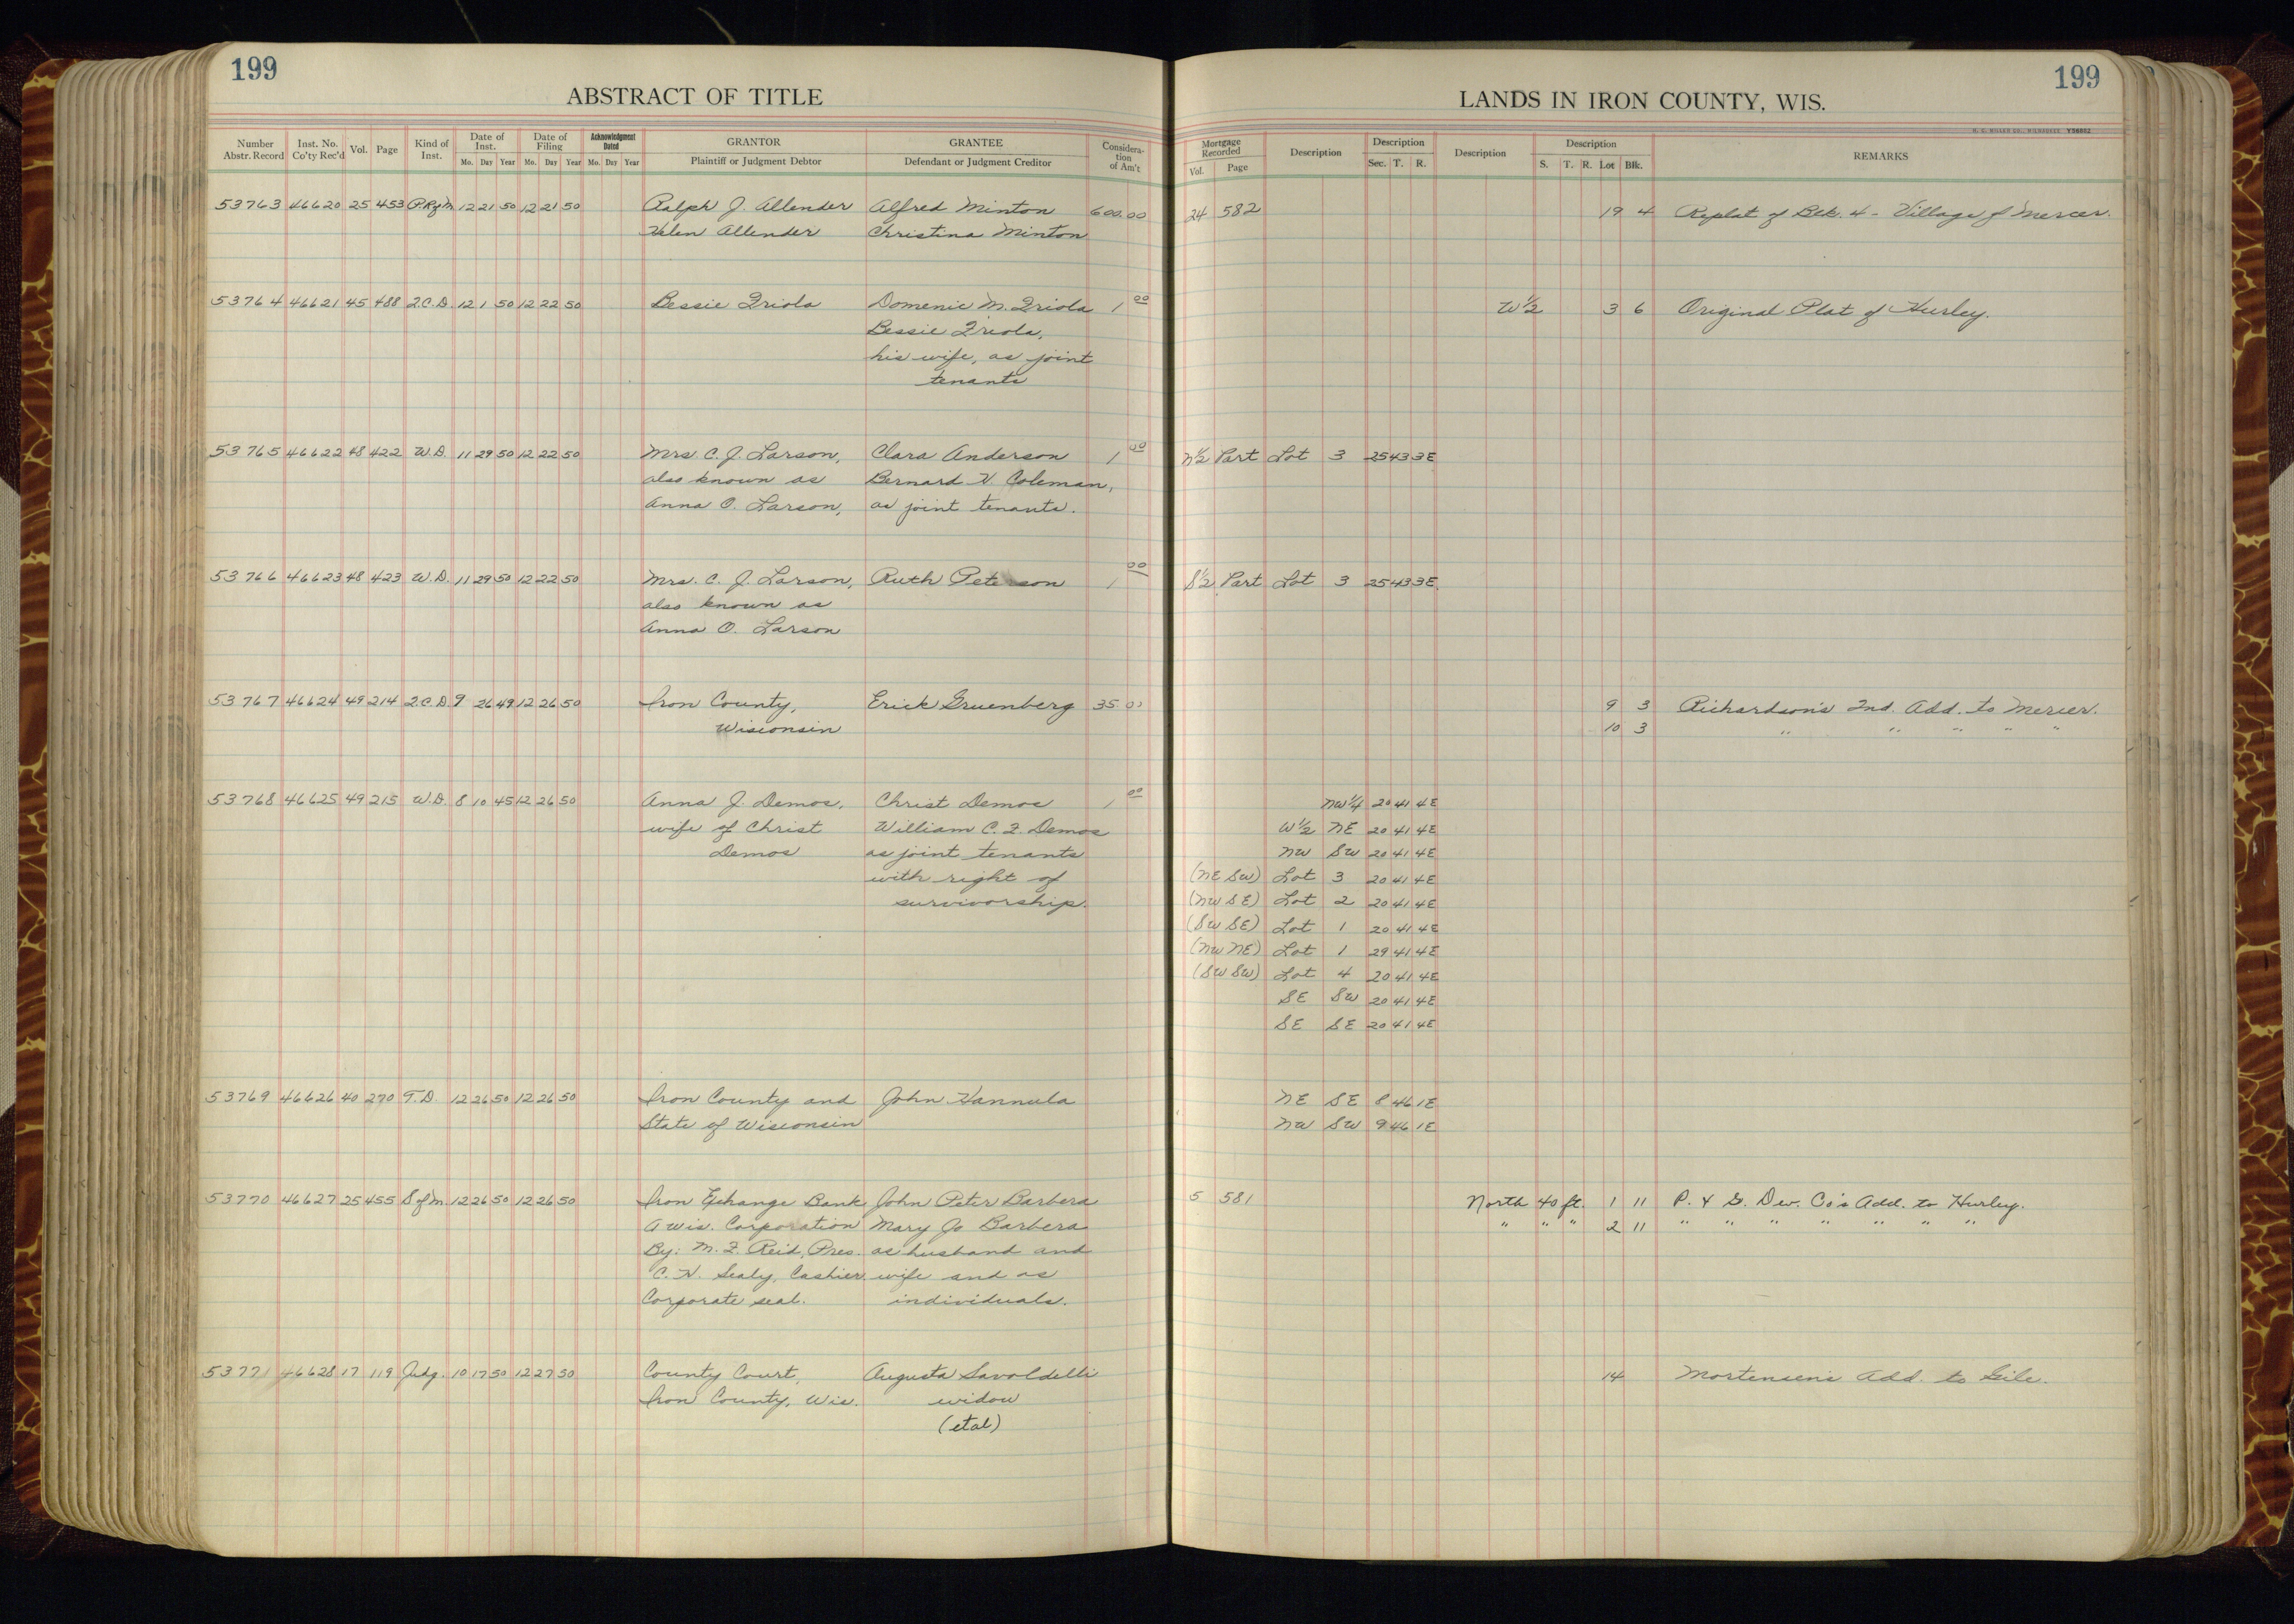 199
ABSTRACT OF TITLE
Number Abstr. Record Inst. No. Co'ty Rec'd Vol. Page Kind of Inst. Date of Inst. Mo. Day Year Date of Filing Mo. Day Year Acknowledgment Dated Mo. Day Year GRANTOR Plaintiff or Judgment Debtor GRANTEE Defendant or Judgment Creditor Consideration of Am't
53763 46620 25 453 12 21 50 12 21 50 Ralph J. Allender Alfred Minton 600.00
Helen Allender Christina Minton
53764 46621 45 488 Q.C.D. 12 1 50 12 22 50 Bessie Triola Domenic M. Triola 1 00
Bessie Triola,
his wife, as joint
tenants
53765 46622 48 422 W.D. 11 29 50 12 22 50 Mrs. C. J. Larson, Clara Anderson 1 00
also known as Bernard H. Coleman,
Anna O. Larson, as joint tenants.
53766 46623 48 423 W.D. 11 29 50 12 22 50 Mrs. C. J. Larson, Ruth Peterson 1 00
also known as
Anna O. Larson
53767 46624 49 214 Q.C.D. 9 26 49 12 26 50 Iron County, Erick Gruenberg 35.00
Wisconsin
53768 46625 49 215 W.D. 8 10 45 12 26 50 Anna J. Demos, Christ Demos 1 00
wife of Christ William C. F. Demos
Demos as joint tenants
with right of
survivorship.
53769 46626 40 270 T.D. 12 26 50 12 26 50 Iron County and John Hannula
State of Wisconsin
53770 46627 25 455 S of M. 12 26 50 12 26 50 Iron Exhange Bank John Peter Barbera
A Wis. Corporation Mary Jo Barbera
By: M. F. Reid, Pres. as husband and
C. H. Sealy, Cashier. wife and as
Corporate seal. individuals.
53771 46628 17 119 Judg. 10 17 50 12 27 50 County Court, Augusta Savoldelli
Iron County, Wis. widow
(etal)
199
LANDS IN IRON COUNTY, WIS.
H. C. MILLER CO., MILWAUKEE
Mortgage Recorded Vol. Page Description Description Sec. T. R. Description Description S. T. R. Lot Blk. REMARKS
24 582 19 4 Replat of Blk. 4 - Village of Mercer.
W½ 3 6 Original Plat of Hurley.
N½ Part Lot 3 25 43 3E
S½ Part Lot 3 25 43 3E
9 3 Richardson's 2nd. Add. to Mercer.
10 3 " " " " "
NW¼ 20 41 4E
W½ NE 20 41 4E
NW SW 20 41 4E
(NE SW) Lot 3 20 41 4E
(NW SE) Lot 2 20 41 4E
(SW SE) Lot 1 20 41 4E
(NW NE) Lot 1 29 41 4E
(SW SW) Lot 4 20 41 4E
SE SW 20 41 4E
SE SE 20 41 4E
NE SE 8 46 1E
NW SW 9 46 1E
5 581 North 40 ft. 1 11 P. & G. Dev. Co's Add. to Hurley.
" " " 2 11 " " " " " " "
14 Mortensen's Add. to Gile.